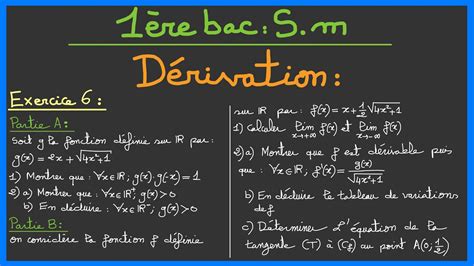 1ère bac: S.m
Dérivation:
Exercice 6:
Partie A:
Soit g la fonction définie sur IR par:
g(x) = 2x + √4x²+1
1) Montrer que: ∀x∈IR; g(x).g(-x) = 1
2) a) Montrer que: ∀x∈IR⁺; g(x)>0
b) En déduire: ∀x∈IR⁻; g(x)>0
Partie B:
on considère la fonction f définie
sur IR par: f(x) = x + 1/2 √4x²+1
1) Calculer lim f(x) x→+∞ et lim f(x) x→-∞
2) a) Montrer que f est dérivable puis
que: ∀x∈IR; f'(x) = g(x)/√4x²+1
b) En déduire le tableau de variations
de f
c) Déterminer l'équation de la
tangente (T) à (Cf) au point A(0; 1/2)